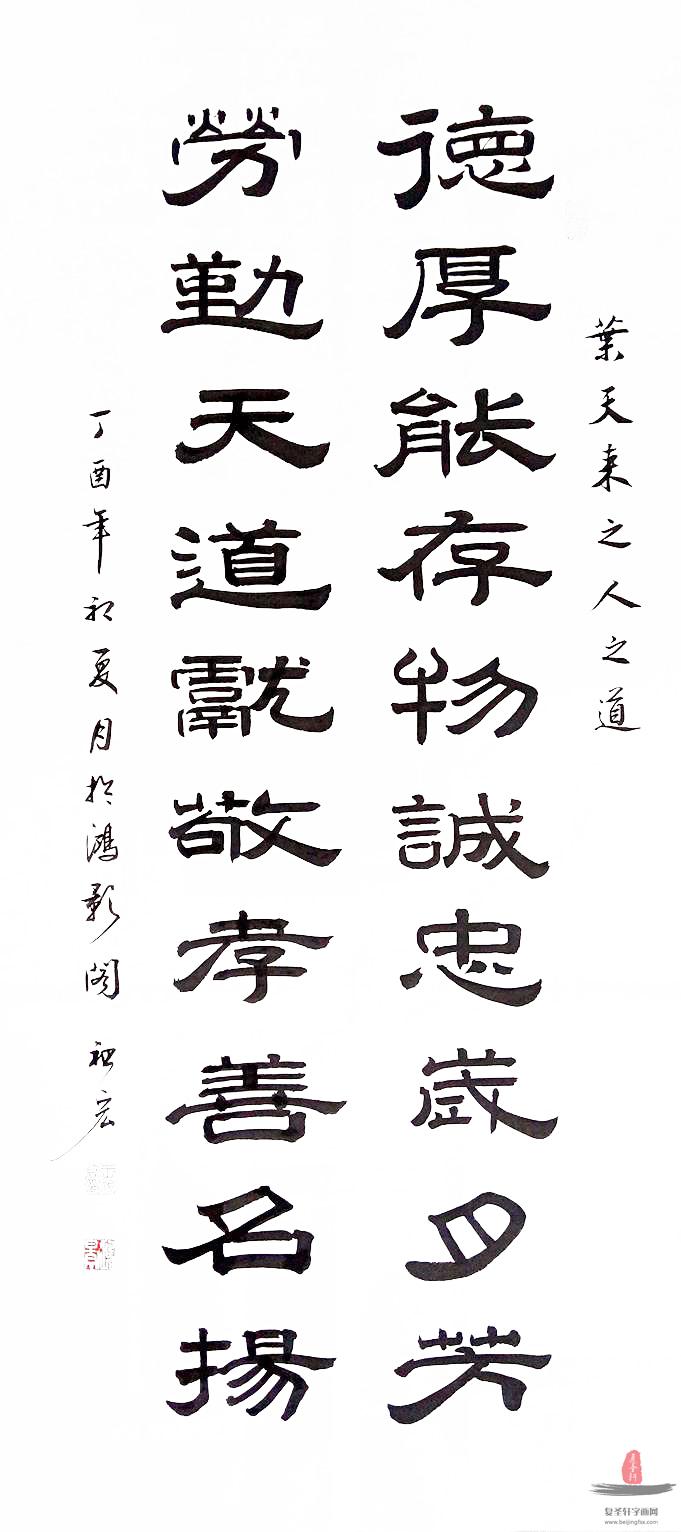 葉天来之人之道
德厚能存物誠忠歲月芳
勞勤天道酬敬孝善名揚
丁酉年初夏月於鴻影閣
复圣轩字画网
www.beijingfsx.com